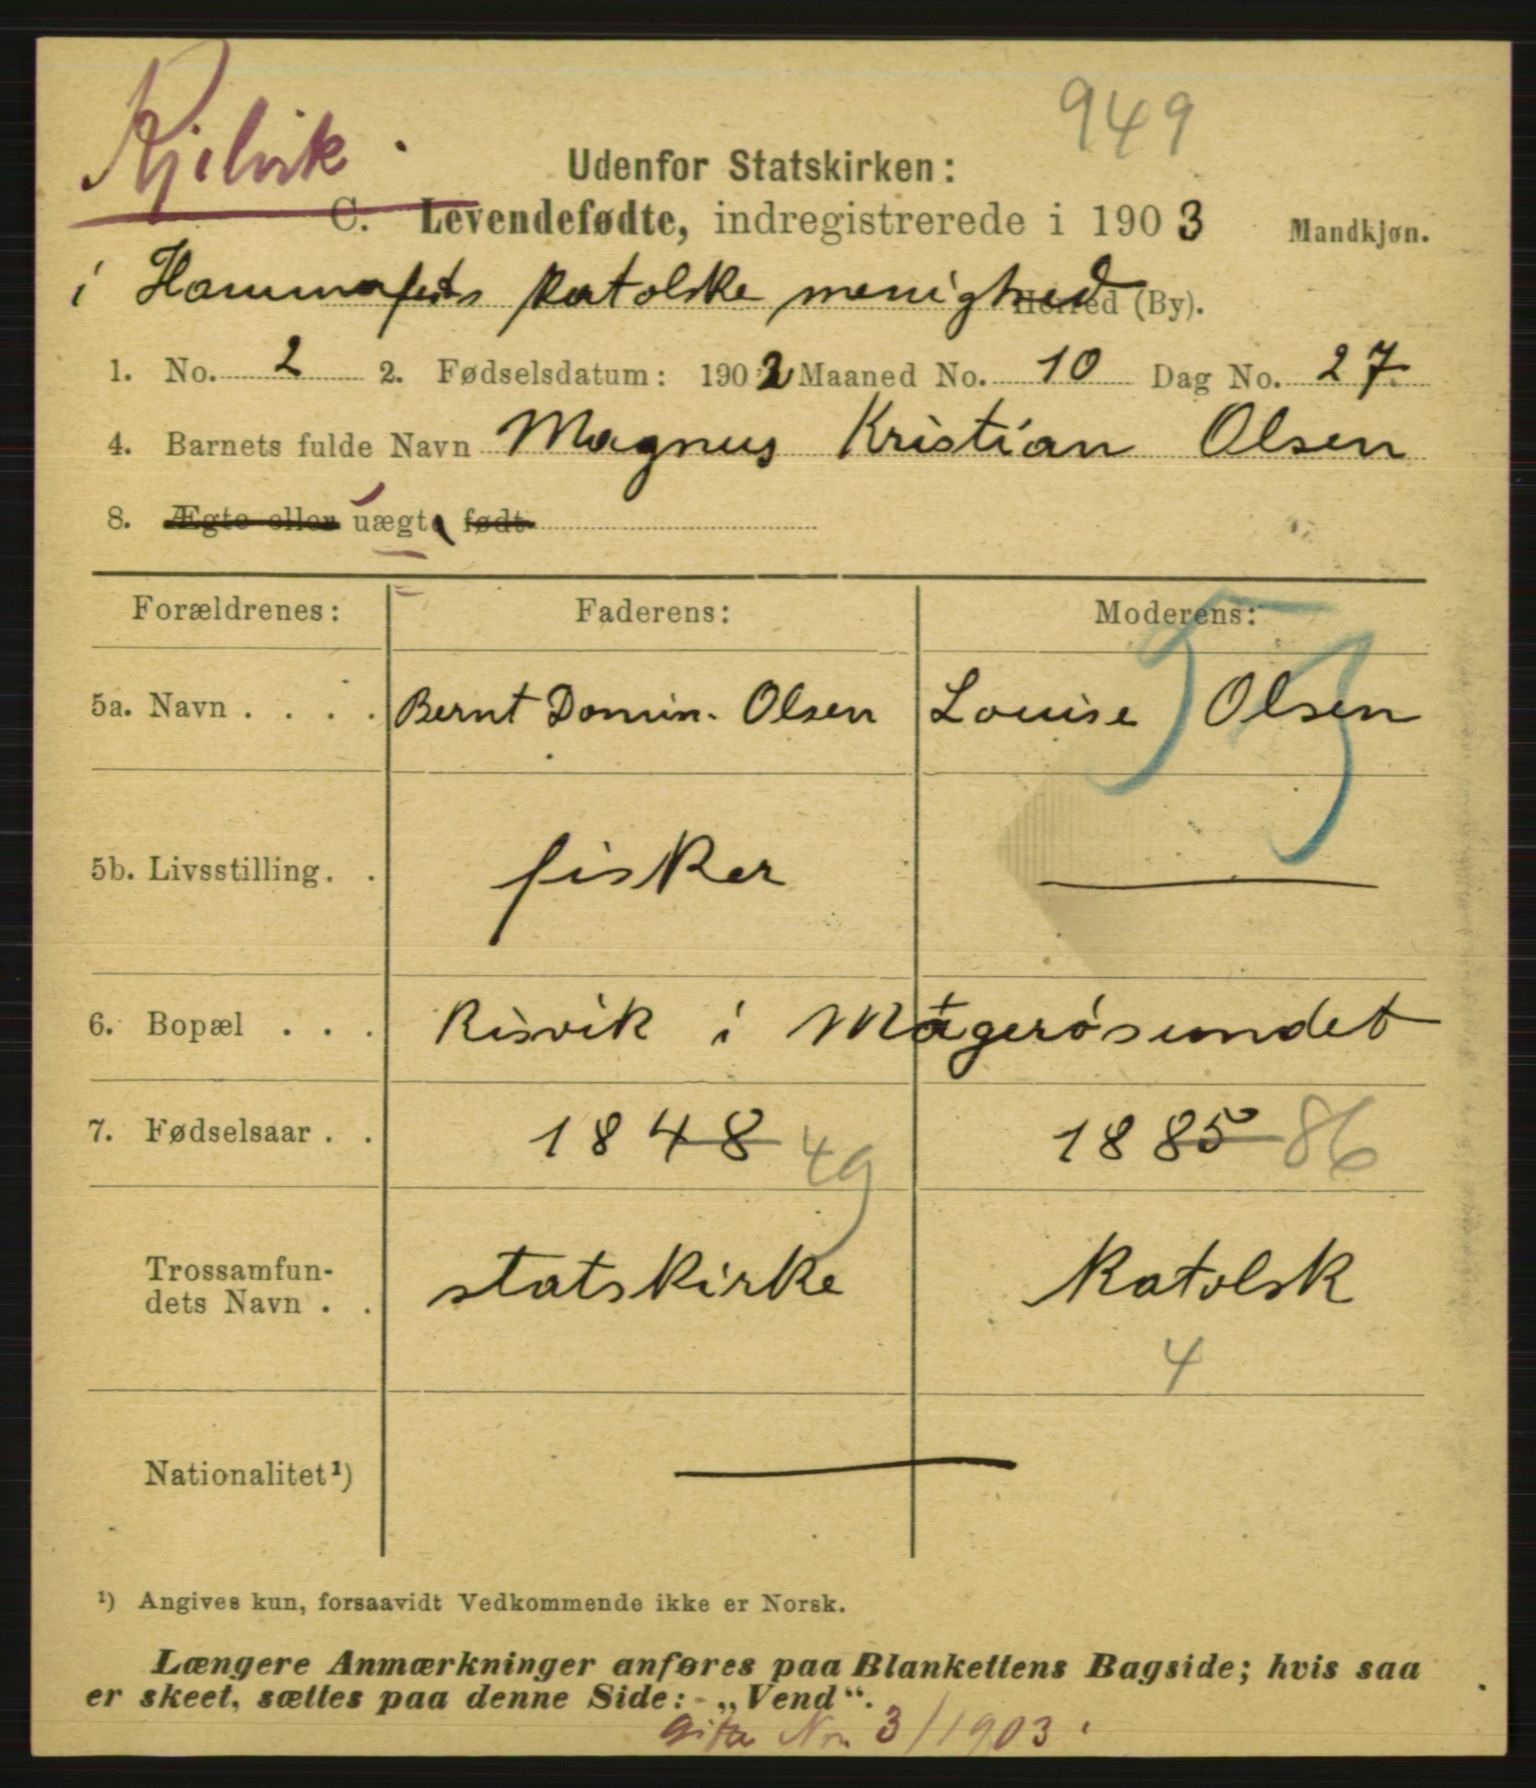 Kjelvik.
949
Udenfor Statskirken:
C. Levendefødte, indregistrerede i 1903 Mandkjøn.
i Hammerfests katolske menighed Herred (By).
1. No. 2 2. Fødselsdatum: 1902 Maaned No. 10 Dag No. 27.
4. Barnets fulde Navn Magnus Kristian Olsen
8. Ægte eller uægte født
Forældrenes: Faderens: Moderens:
55
5a. Navn . . . . Bernt Domin. Olsen Louise Olsen
5b. Livsstilling. . fisker
6. Bopæl . . . Risvik i Mågerösundet
7. Fødselsaar . . 1848 49 1885 86
Trossamfun-
dets Navn . . statskirke Katolsk
4
Nationalitet¹)
¹) Angives kun, forsaavidt Vedkommende ikke er Norsk.
Længere Anmærkninger anføres paa Blankettens Bagside; hvis saa
er skeet, sættes paa denne Side: - „Vend“.
gifte Nr. 3/1903.